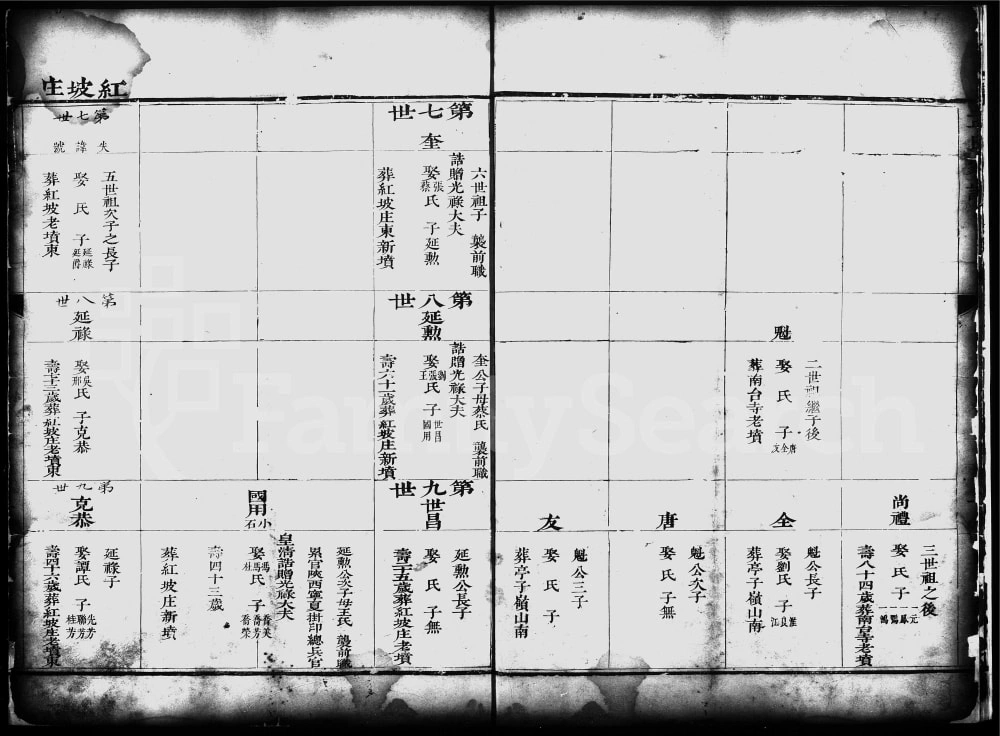 尚禮
三世祖之後
娶 氏 子
壽八十四歲葬南台寺老墳
魁
二世祖繼子後
娶 氏 子 唐全友
葬南台寺老墳
全
魁公長子
娶劉氏 子
葬亭子嶺山南
唐
魁公次子
娶 氏 子無
友
魁公三子
娶 氏 子
葬亭子嶺山南
第七世
奎
六世祖子 襲前職
誥贈光祿大夫
娶張蔡氏 子延勲
葬紅坡庄東新墳
第八世
延勲
奎公子母蔡氏 襲前職
誥贈光祿大夫
娶劉張王氏 子世昌國用
壽六十二歲葬紅坡庄新墳
第九世
世昌
延勲公長子
娶 氏 子無
壽二十五歲葬紅坡庄老墳
國用
小石
延勲公次子母王氏 襲前職
累官陝西寧夏掛印總兵官
皇清誥贈光祿大夫
娶馮馬杜氏 子喬芳喬榮
壽四十三歲
葬紅坡庄新墳
紅坡庄
第七世
失諱號
五世祖次子之長子
娶 氏 子延祿延爵
葬紅坡老墳東
第八世
延祿
娶吳邢氏 子克恭
葬紅坡庄老墳東
第九世
克恭
延祿子
娶譚氏 子先芳聯芳桂芳
壽四十六歲葬紅坡庄老墳東
FamilySearch